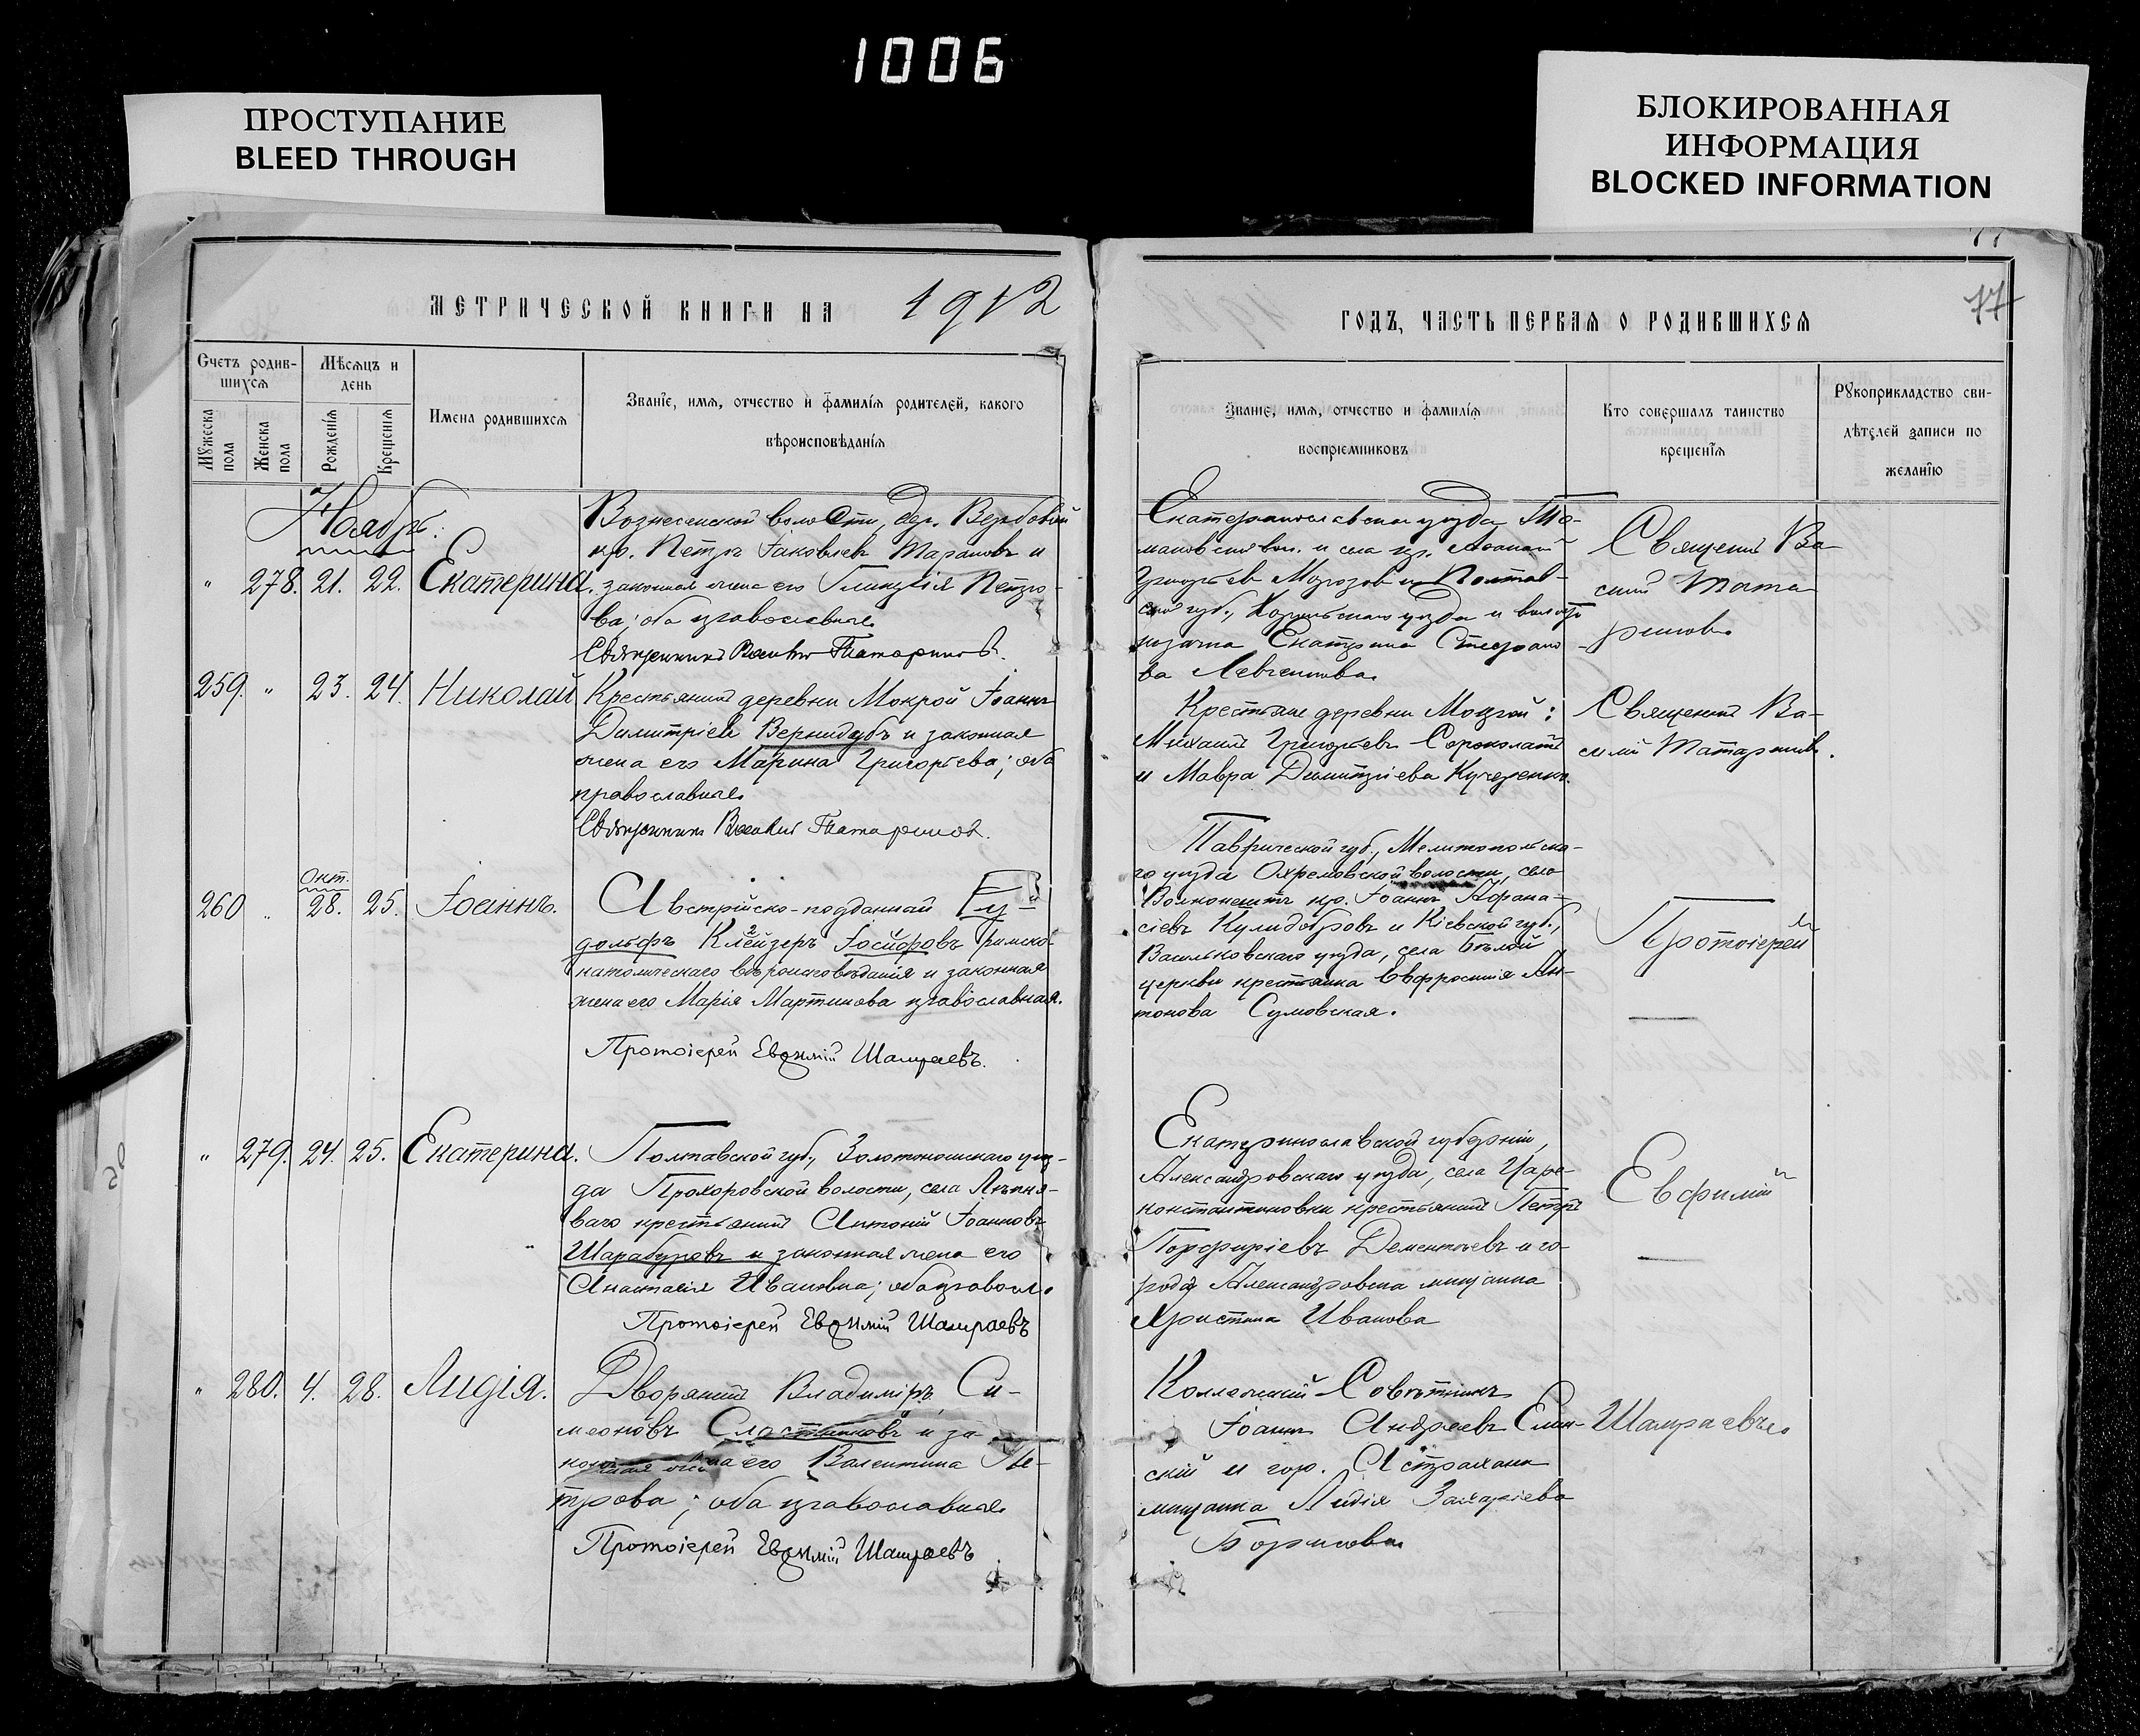 1006
ПРОСТУПАНИЕ
BLEED THROUGH
БЛОКИРОВАННАЯ
ИНФОРМАЦИЯ
BLOCKED INFORMATION
МЕТРИЧЕСКОЙ КНИГИ НА 1912
Счетъ родив-
шихся
Мѣсяцъ и
день
Мужеска
пола
Женска
пола
Рожденія
Крещенія
Имена родившихся
Званіе, имя, отчество и фамилія родителей, какого
вѣроисповѣданія
Ноябрь.
Вознесенской волости, дер. Вербовой
кр. Петръ Іаковлевъ Тарановъ и
" 278. 21. 22. Екатерина. законная жена его Гликерія Петро-
ва; оба православные.
Священникъ Василій Татариновъ.
259. " 23. 24. Николай Крестьянинъ деревни Мокрой Іоаннъ
Димитріевъ Вернидубъ и законная
жена его Марина Григорьева; оба
православные.
Священникъ Василій Татариновъ.
Окт.
260 " 28. 25. Іоаннъ. Австрійско-подданный Ру-
дольфъ Клейзеръ Іосифовъ римско-
католическаго вѣроисповѣданія и законная
жена его Марія Мартинова православная.
Протоіерей Евфимій Шамраевъ.
" 279. 24. 25. Екатерина. Полтавской губ., Золотоношскаго уѣз-
да Прохоровской волости, села Лѣпля-
ваго крестьянинъ Антоній Іоанновъ
Шарабуровъ и законная жена его
Анастасія Ивановна; оба правосл.
Протоіерей Евфимій Шамраевъ
" 280. 4. 28. Лидія. Дворянинъ Владиміръ Си-
меоновъ Сластниковъ и за
конная жена его Валентина Пе-
трова; оба православные.
Протоіерей Евфимій Шамраевъ
77
ГОДЪ, ЧАСТЬ ПЕРВАЯ О РОДИВШИХСЯ
Званіе, имя, отчество и фамилія
воспріемниковъ
Кто совершалъ таинство
крещенія
Рукоприкладство сви-
дѣтелей записи по
желанію
Екатеринославскаго уѣзда
и села кр.
Григорьевъ Морозовъ и Полтав-
ской губ., уѣзда и волости
казачка Екатерина Стефано
ва Левченкова.
Священникъ Ва-
силій Тата
риновъ.
Крестьяне деревни Мокрой:
Михаилъ Григорьевъ Сороколатъ
и Мавра Димитріева Кучеренко.
Священникъ Ва-
силій Татариновъ.
Таврической губ., Мелитопольска-
го уѣзда Охремовской волости, села
кр. Іоаннъ Афана-
сіевъ Кулидобровъ и Кіевской губ.,
Васильковскаго уѣзда, села Бѣлой
церкви крестьянка Евфросинія Ан-
тонова Сумовская.
Протоіерей
Екатеринославской губерніи,
Александровскаго уѣзда, села Царе-
константиновки крестьянинъ Петръ
Порфиріевъ Дементьевъ и го-
рода Александровска мѣщанка
Христина Иванова
Евфимій
Коллежскій Совѣтникъ
Іоаннъ Андреевъ Елин-
скій и гор. Астрахани
мѣщанка Лидія Захаріева
Борисова
Шамраевъ.